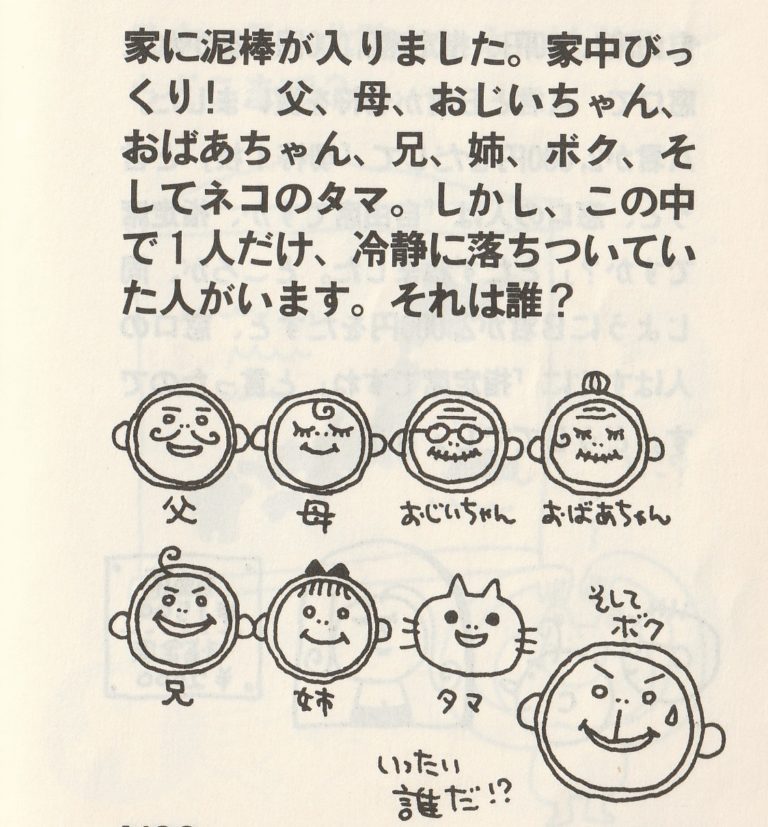 家に泥棒が入りました。家中びっ
くり！　父、母、おじいちゃん、
おばあちゃん、兄、姉、ボク、そ
してネコのタマ。しかし、この中
で１人だけ、冷静に落ちついてい
た人がいます。それは誰？
父
母
おじいちゃん
おばあちゃん
兄
姉
タマ
そして
ボク
いったい
誰だ!?